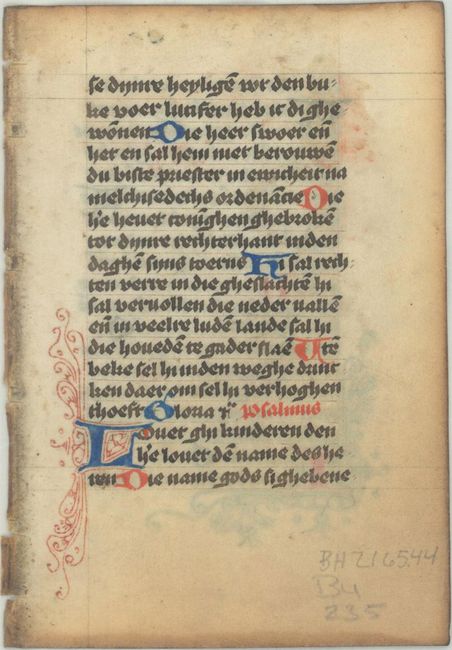 se dijnre heyligē wt den bu-
ke voer lucifer heb ic di ghe-
wōnen Die heer swoer eñ
het en sal hem niet berouwē
du biste priester in ewicheit na
melchisedechs ordenācie Die
hē hevet coninghen ghebrokē
tot dijnre rechterhant in den
daghē sijns toerns Hi sal rech-
ten verre in die gheslachtē hi
sal vervollen die neder vallē
eñ in veelre ludē lande sal hi
die hovedē te gader slaē Utē
beke sel hi in den weghe drinc
ken daer om sel hi verhoghen
thoeft Gloria psalmus
Lovet ghi kinderen den
hē lovet dē name des he-
ren Die name gods si ghebene-
BH 216544
B4
235